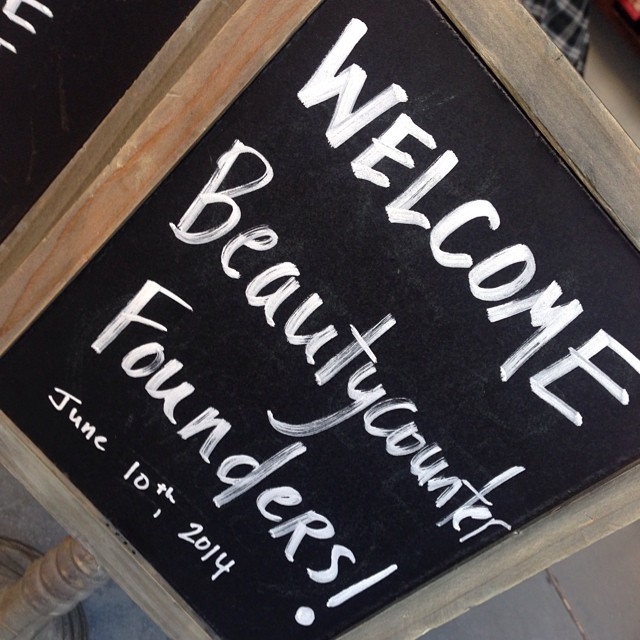 WELCOME
Beautycounter
Founders!
June 10th, 2014